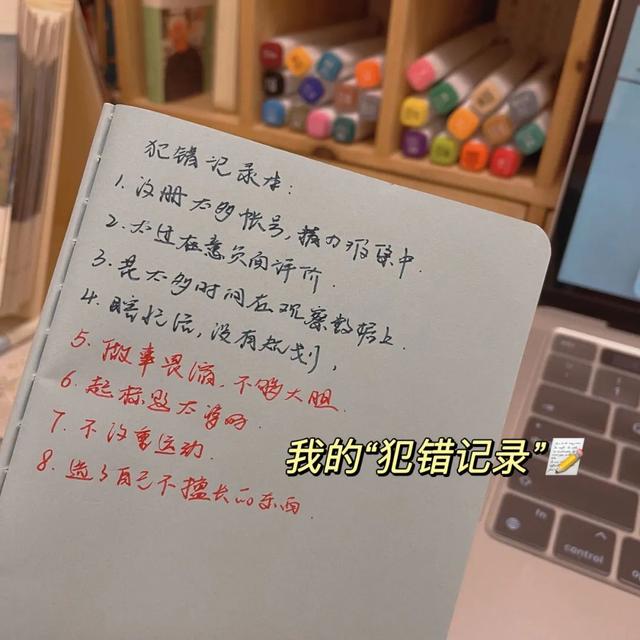 犯错记录本:
1. 注册太多帐号,精力不集中.
2. 太过在意负面评价.
3. 花太多时间在观察数据上.
4. 瞎忙活,没有规划,
5. 做事畏缩.不够大胆.
6. 起标题太
7. 不注重运动.
8. 选了自己不擅长的东西.
我的“犯错记录”
fn
control
option